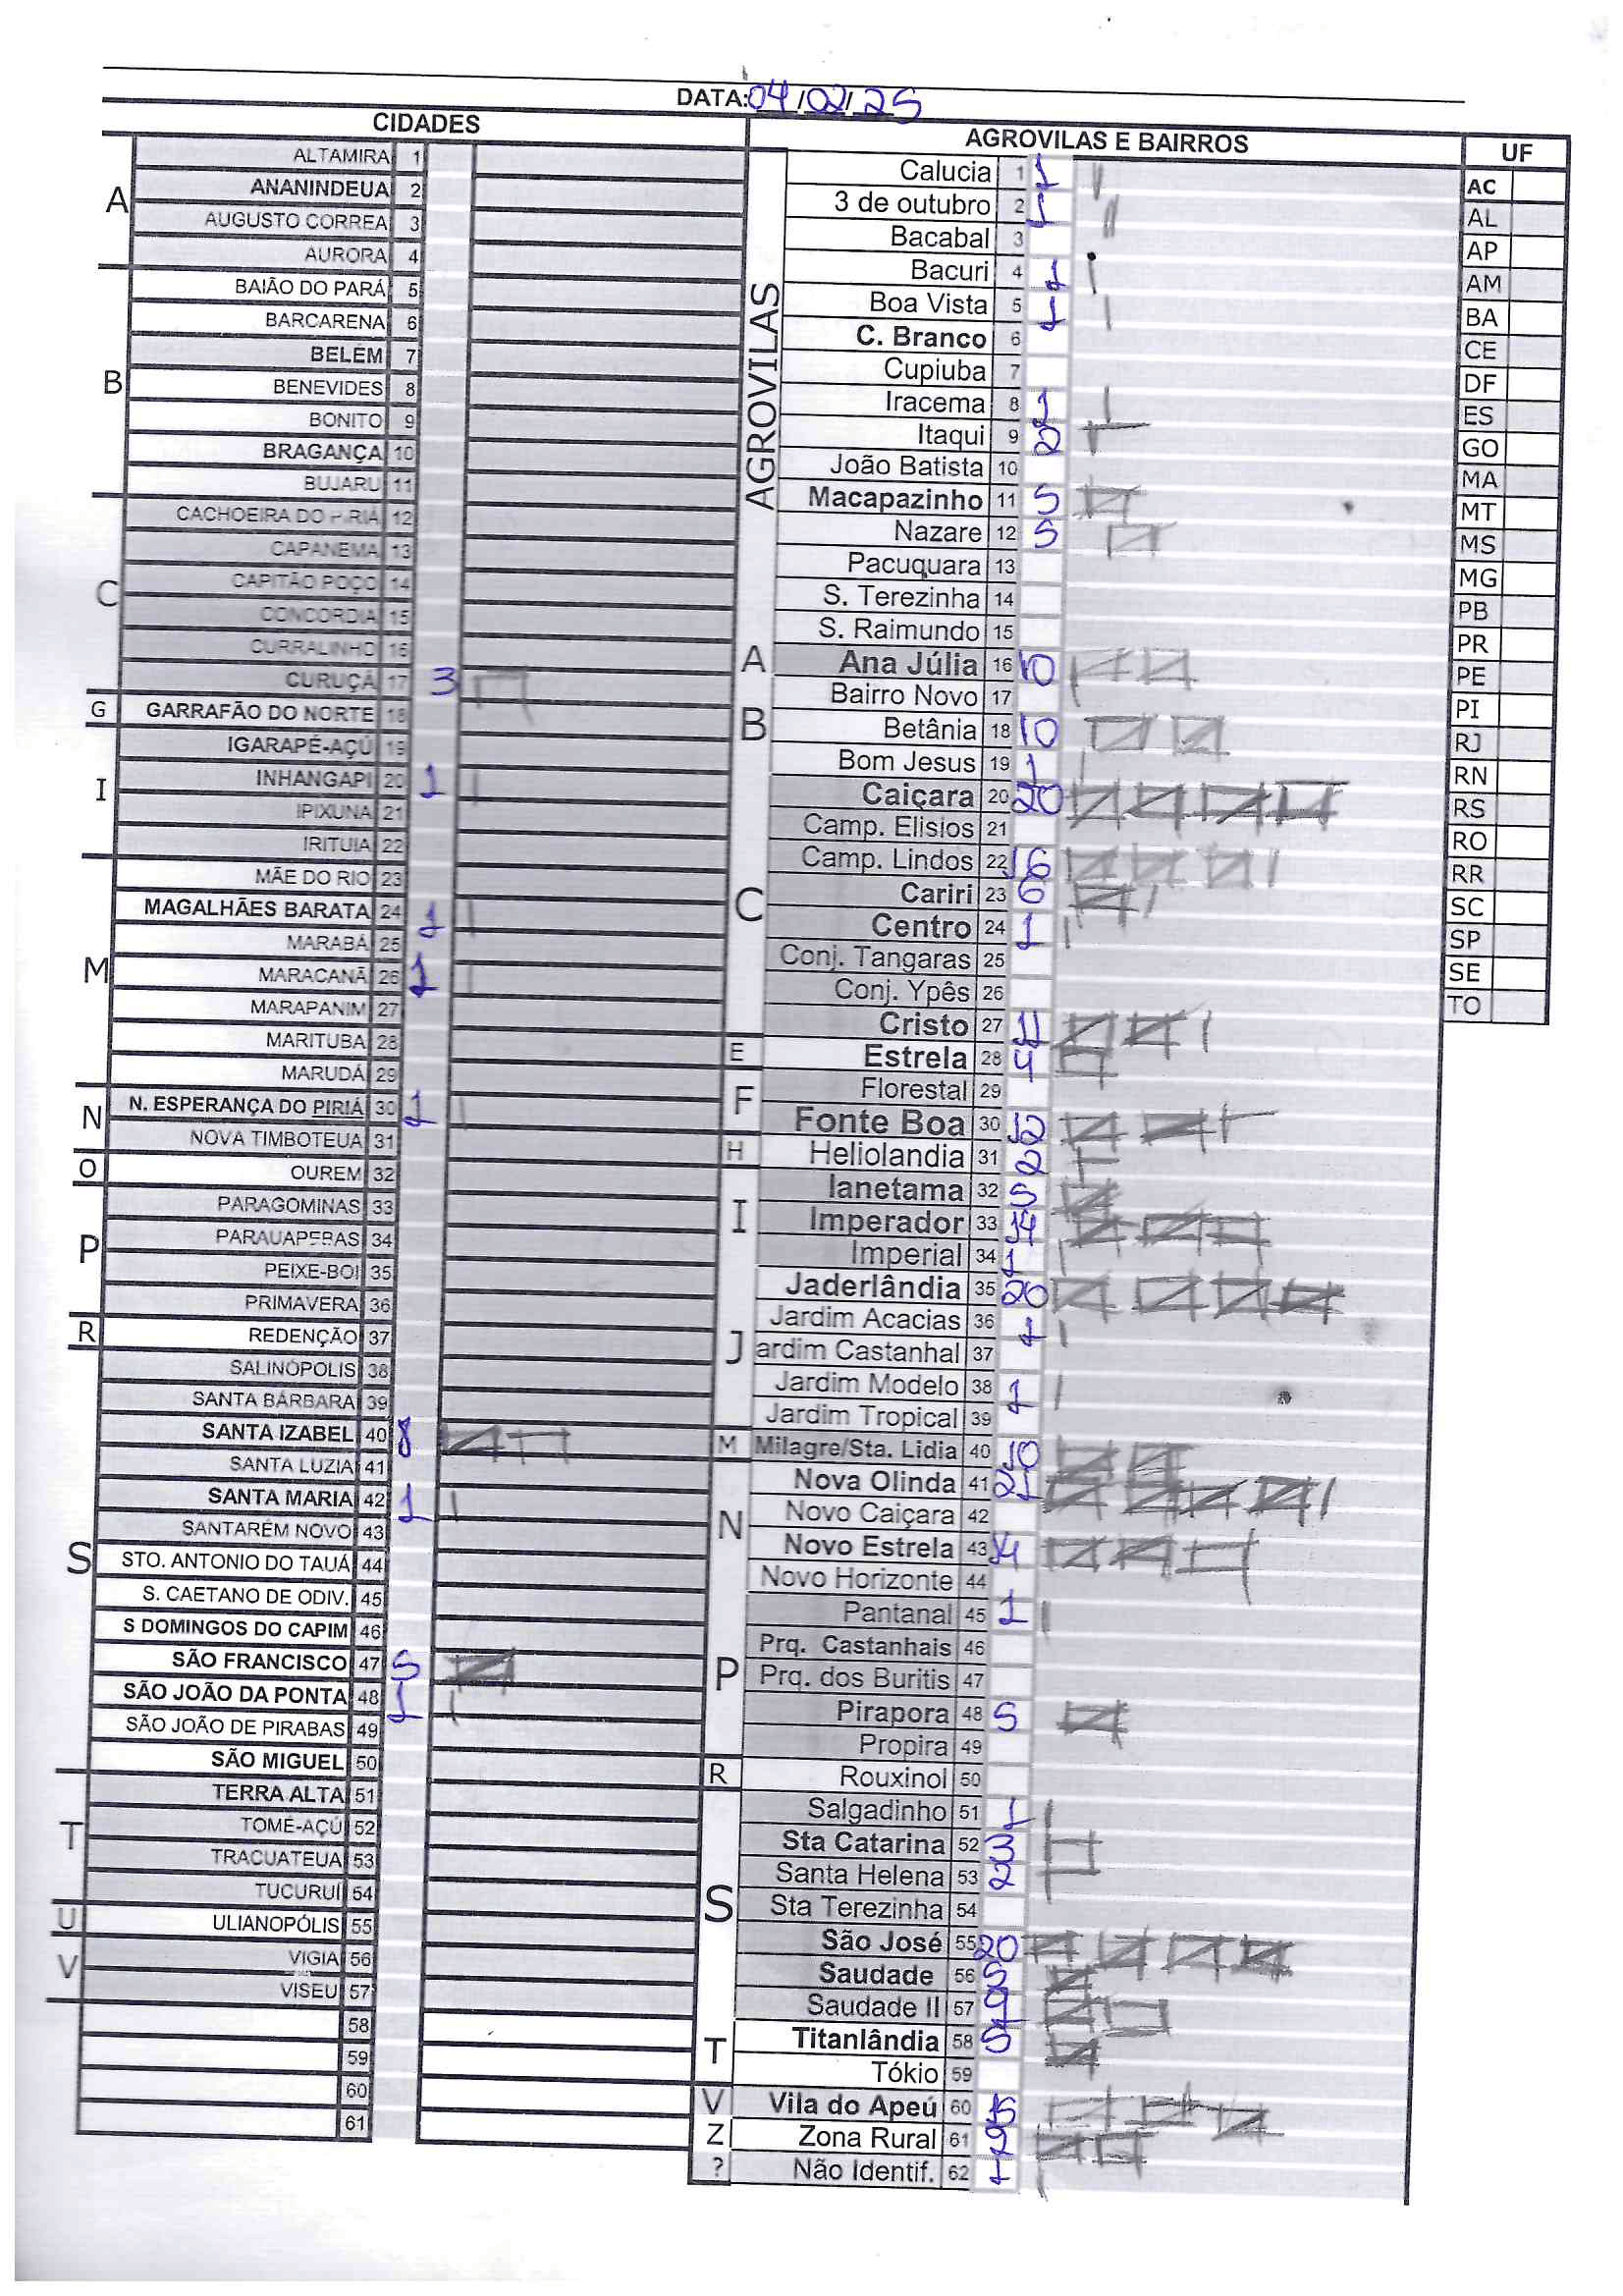 DATA: 04/02/25
CIDADES
A
ALTAMIRA 1
ANANINDEUA 2
AUGUSTO CORREA 3
AURORA 4
B
BAIÃO DO PARÁ 5
BARCARENA 6
BELÉM 7
BENEVIDES 8
BONITO 9
BRAGANÇA 10
BUJARU 11
C
CACHOEIRA DO PIRIÁ 12
CAPANEMA 13
CAPITÃO POÇO 14
CONCORDIA 15
CURRALINHO 16
CURUÇÁ 17 3
G
GARRAFÃO DO NORTE 18
I
IGARAPÉ-AÇÚ 19
INHANGAPI 20 1
IPIXUNA 21
IRITUIA 22
M
MÃE DO RIO 23
MAGALHÃES BARATA 24 1
MARABÁ 25
MARACANÃ 26 1
MARAPANIM 27
MARITUBA 28
MARUDÁ 29
N
N. ESPERANÇA DO PIRIÁ 30 1
NOVA TIMBOTEUA 31
O
OUREM 32
P
PARAGOMINAS 33
PARAUAPEBAS 34
PEIXE-BOI 35
PRIMAVERA 36
R
REDENÇÃO 37
S
SALINÓPOLIS 38
SANTA BÁRBARA 39
SANTA IZABEL 40 8
SANTA LUZIA 41
SANTA MARIA 42 1
SANTARÉM NOVO 43
STO. ANTONIO DO TAUÁ 44
S. CAETANO DE ODIV. 45
S DOMINGOS DO CAPIM 46
SÃO FRANCISCO 47 5
SÃO JOÃO DA PONTA 48 1
SÃO JOÃO DE PIRABAS 49
SÃO MIGUEL 50
T
TERRA ALTA 51
TOMÉ-AÇÚ 52
TRACUATEUA 53
TUCURUÍ 54
U
ULIANOPÓLIS 55
V
VIGIA 56
VISEU 57
58
59
60
61
AGROVILAS E BAIRROS
AGROVILAS
Calucia 1 1
3 de outubro 2 1
Bacabal 3
Bacuri 4 1
Boa Vista 5 1
C. Branco 6
Cupiuba 7
Iracema 8 1
Itaqui 9 2
João Batista 10
Macapazinho 11 5
Nazare 12 5
Pacuquara 13
S. Terezinha 14
S. Raimundo 15
A
Ana Júlia 16 10
B
Bairro Novo 17
Betânia 18 10
Bom Jesus 19 1
C
Caiçara 20 20
Camp. Elisios 21
Camp. Lindos 22 16
Cariri 23 6
Centro 24 1
Conj. Tangaras 25
Conj. Ypês 26
Cristo 27 11
E
Estrela 28 4
F
Florestal 29
Fonte Boa 30 12
H
Heliolandia 31 2
I
Ianetama 32 5
Imperador 33 14
Imperial 34 1
J
Jaderlândia 35 20
Jardim Acacias 36 1
ardim Castanhal 37
Jardim Modelo 38 1
Jardim Tropical 39
M
Milagre/Sta. Lidia 40 10
N
Nova Olinda 41 21
Novo Caiçara 42
Novo Estrela 43 14
Novo Horizonte 44
P
Pantanal 45 1
Prq. Castanhais 46
Prq. dos Buritis 47
Pirapora 48 5
Propira 49
R
Rouxinol 50
S
Salgadinho 51 1
Sta Catarina 52 3
Santa Helena 53 2
Sta Terezinha 54
São José 55 20
Saudade 56 5
Saudade II 57 9
T
Titanlândia 58 5
Tókio 59
V
Vila do Apeú 60 15
Z
Zona Rural 61 9
?
Não Identif. 62 1
UF
AC
AL
AP
AM
BA
CE
DF
ES
GO
MA
MT
MS
MG
PB
PR
PE
PI
RJ
RN
RS
RO
RR
SC
SP
SE
TO